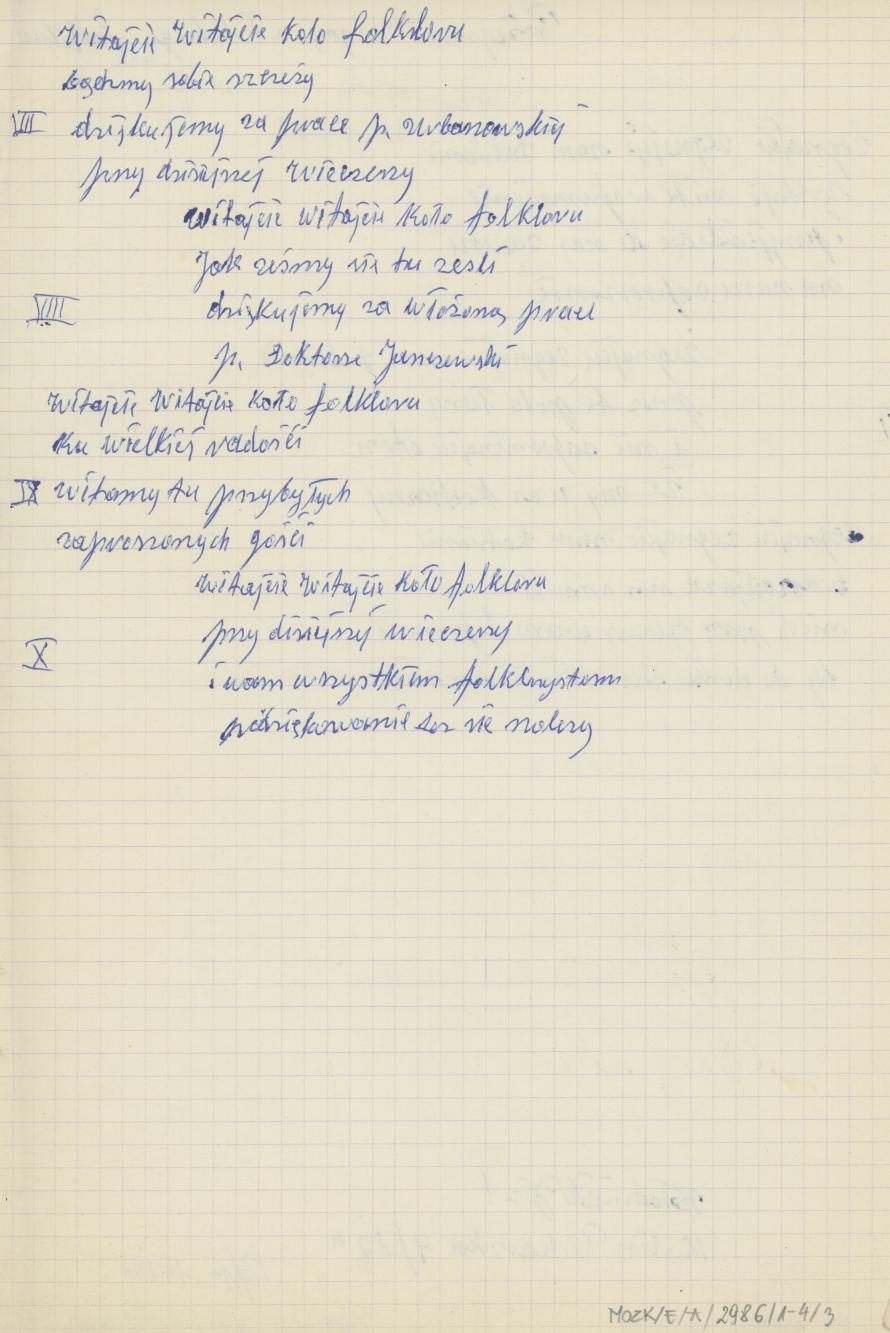 Witajcie Witajcie Koło folkloru
bądzmy sobie szczeży
VII dziękujemy za prace p. Urbanowskiej
przy dzisiejszej Wieczezy
witajcie witajcie Koło folkloru
Jak ześmy sie tu zesli
VIII dziękujemy za włożoną prace
p. Doktorze Janczewski
Witajcie Witajcie Koło folkloru
Ku wielkiej radości
IX witamy tu przybyłych
zaproszonych gości
witajcie Witajcie Koło folkloru
przy disiejszej wieczezy
X
i wam wszystkiem folklorystom
podziękowanie sie nalezy
MOZK/E/A/2986/1-4/3